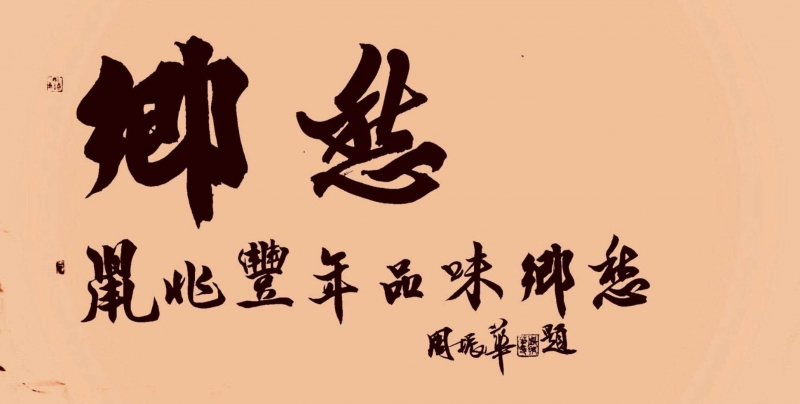 鄉愁
鼠兆豐年品味鄉愁
周振華題